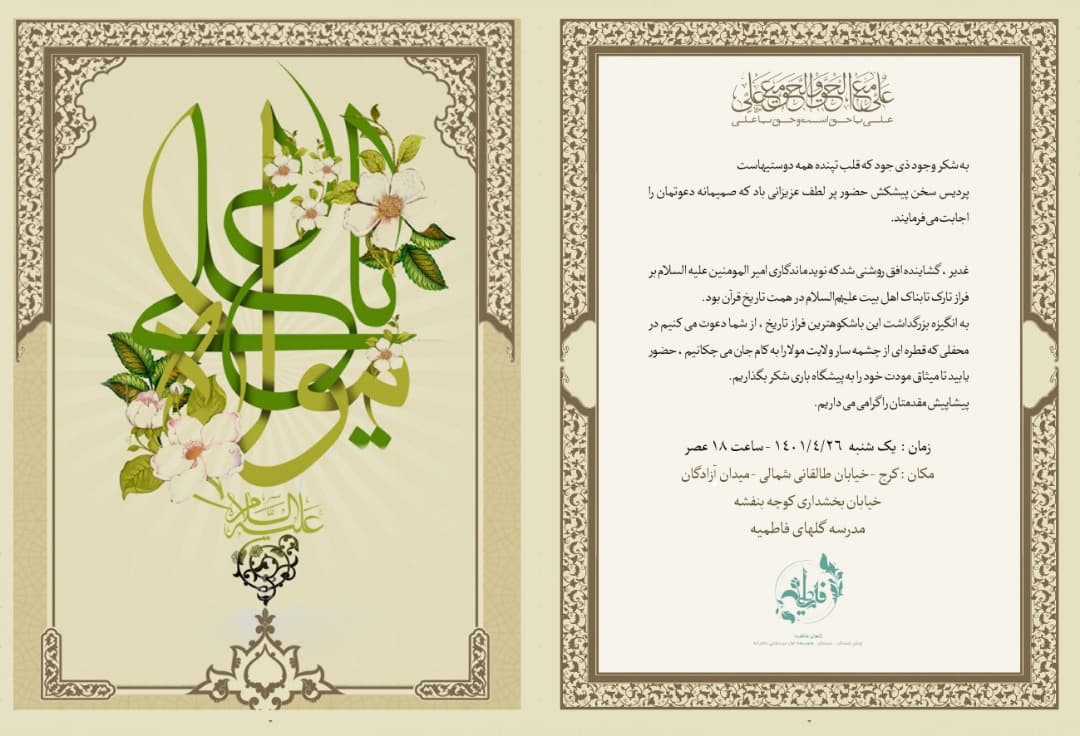 یا علی
مولا
علیه السلام
علی مع الحق والحق مع علی
علی با حق است و حق با علی
به شکر وجود ذی جود که قلب تپنده همه دوستیهاست
پردیس سخن پیشکش حضور پر لطف عزیزانی باد که صمیمانه دعوتمان را
اجابت می‌فرمایند.
غدیر ، گشاینده افق روشنی شد که نوید ماندگاری امیر المومنین علیه السلام بر
فراز تارک تابناک اهل بیت علیهم‌السلام در همت تاریخ قرآن بود.
به انگیزه بزرگداشت این باشکوهترین فراز تاریخ ، از شما دعوت می کنیم در
محفلی که قطره ای از چشمه سار ولایت مولا را به کام جان می چکانیم ، حضور
یابید تا میثاق مودت خود را به پیشگاه باری شکر بگذاریم.
پیشاپیش مقدمتان را گرامی می داریم.
زمان : یک شنبه ۱۴۰۱/۴/۲۶ - ساعت ۱۸ عصر
مکان : کرج - خیابان طالقانی شمالی - میدان آزادگان
خیابان بخشداری کوچه بنفشه
مدرسه گلهای فاطمیه
فاطمیه